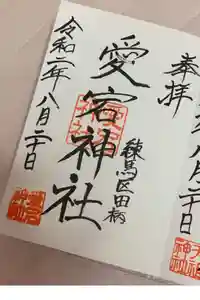 八月二十日
奉拝
練馬区田柄
愛宕神社
令和二年八月二十日